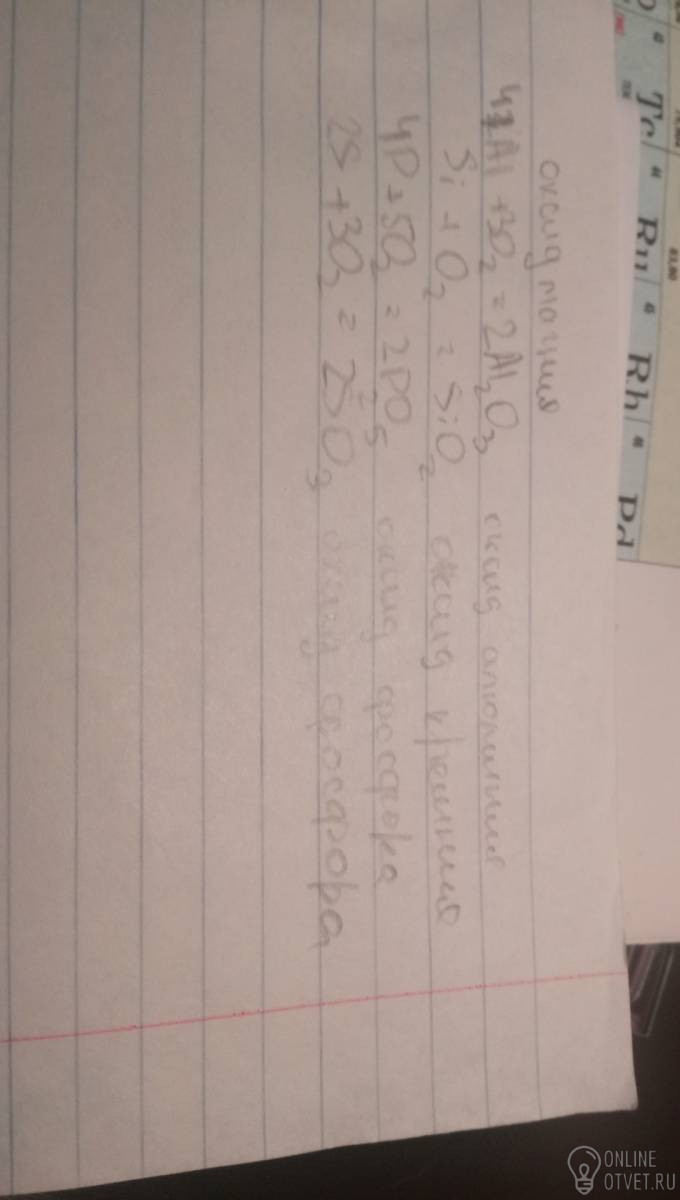 оксид магния
4Al + 3O₂ = 2Al₂O₃ оксид алюминия
Si + O₂ = SiO₂ оксид кремния
4P + 5O₂ = 2P₂O₅ оксид фосфора
2S + 3O₂ = 2SO₃ оксид фосфора
Tc
Ru
Rh
Pd
ONLINE
OTVET.RU